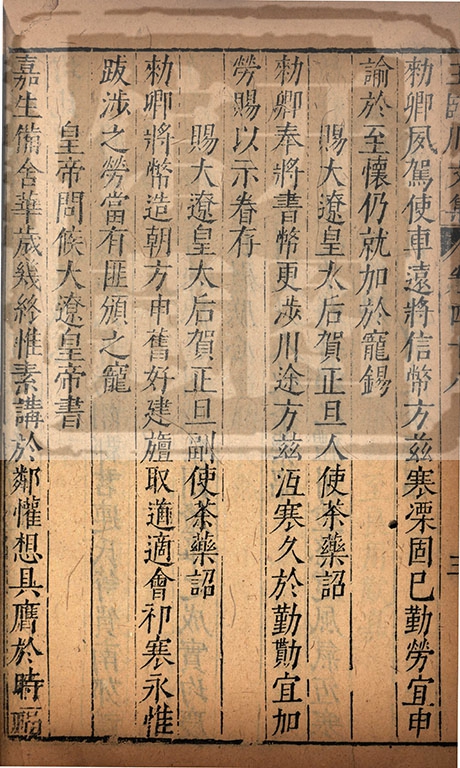 王臨川文集 卷四十八 三
勑卿夙駕使車遠將信幣方茲寒凓固已勤勞宜申
諭於至懷仍就加於寵錫
賜大遼皇太后賀正旦人使茶藥詔
勑卿奉將書幣更涉川途方茲冱寒久於勤勩宜加
勞賜以示眷存
賜大遼皇太后賀正旦副使茶藥詔
勑卿將幣造朝方申舊好建旜取道適會祁寒永惟
跋涉之勞當有匪頒之寵
皇帝問候大遼皇帝書
嘉生備舍華歲幾終惟素講於鄰懽想具膺於時